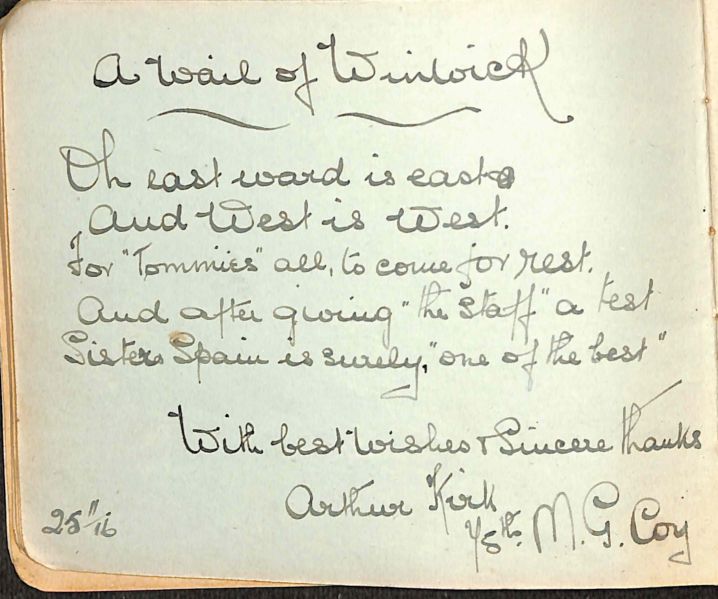 A Wail of Winwick
Oh east ward is east
And West is West.
For "Tommies" all, to come for rest.
And after giving "the Staff" a test
Sister Spain is surely, "one of the best"
With best wishes & Sincere thanks
Arthur Kirk
25/11/16
M. G. Coy